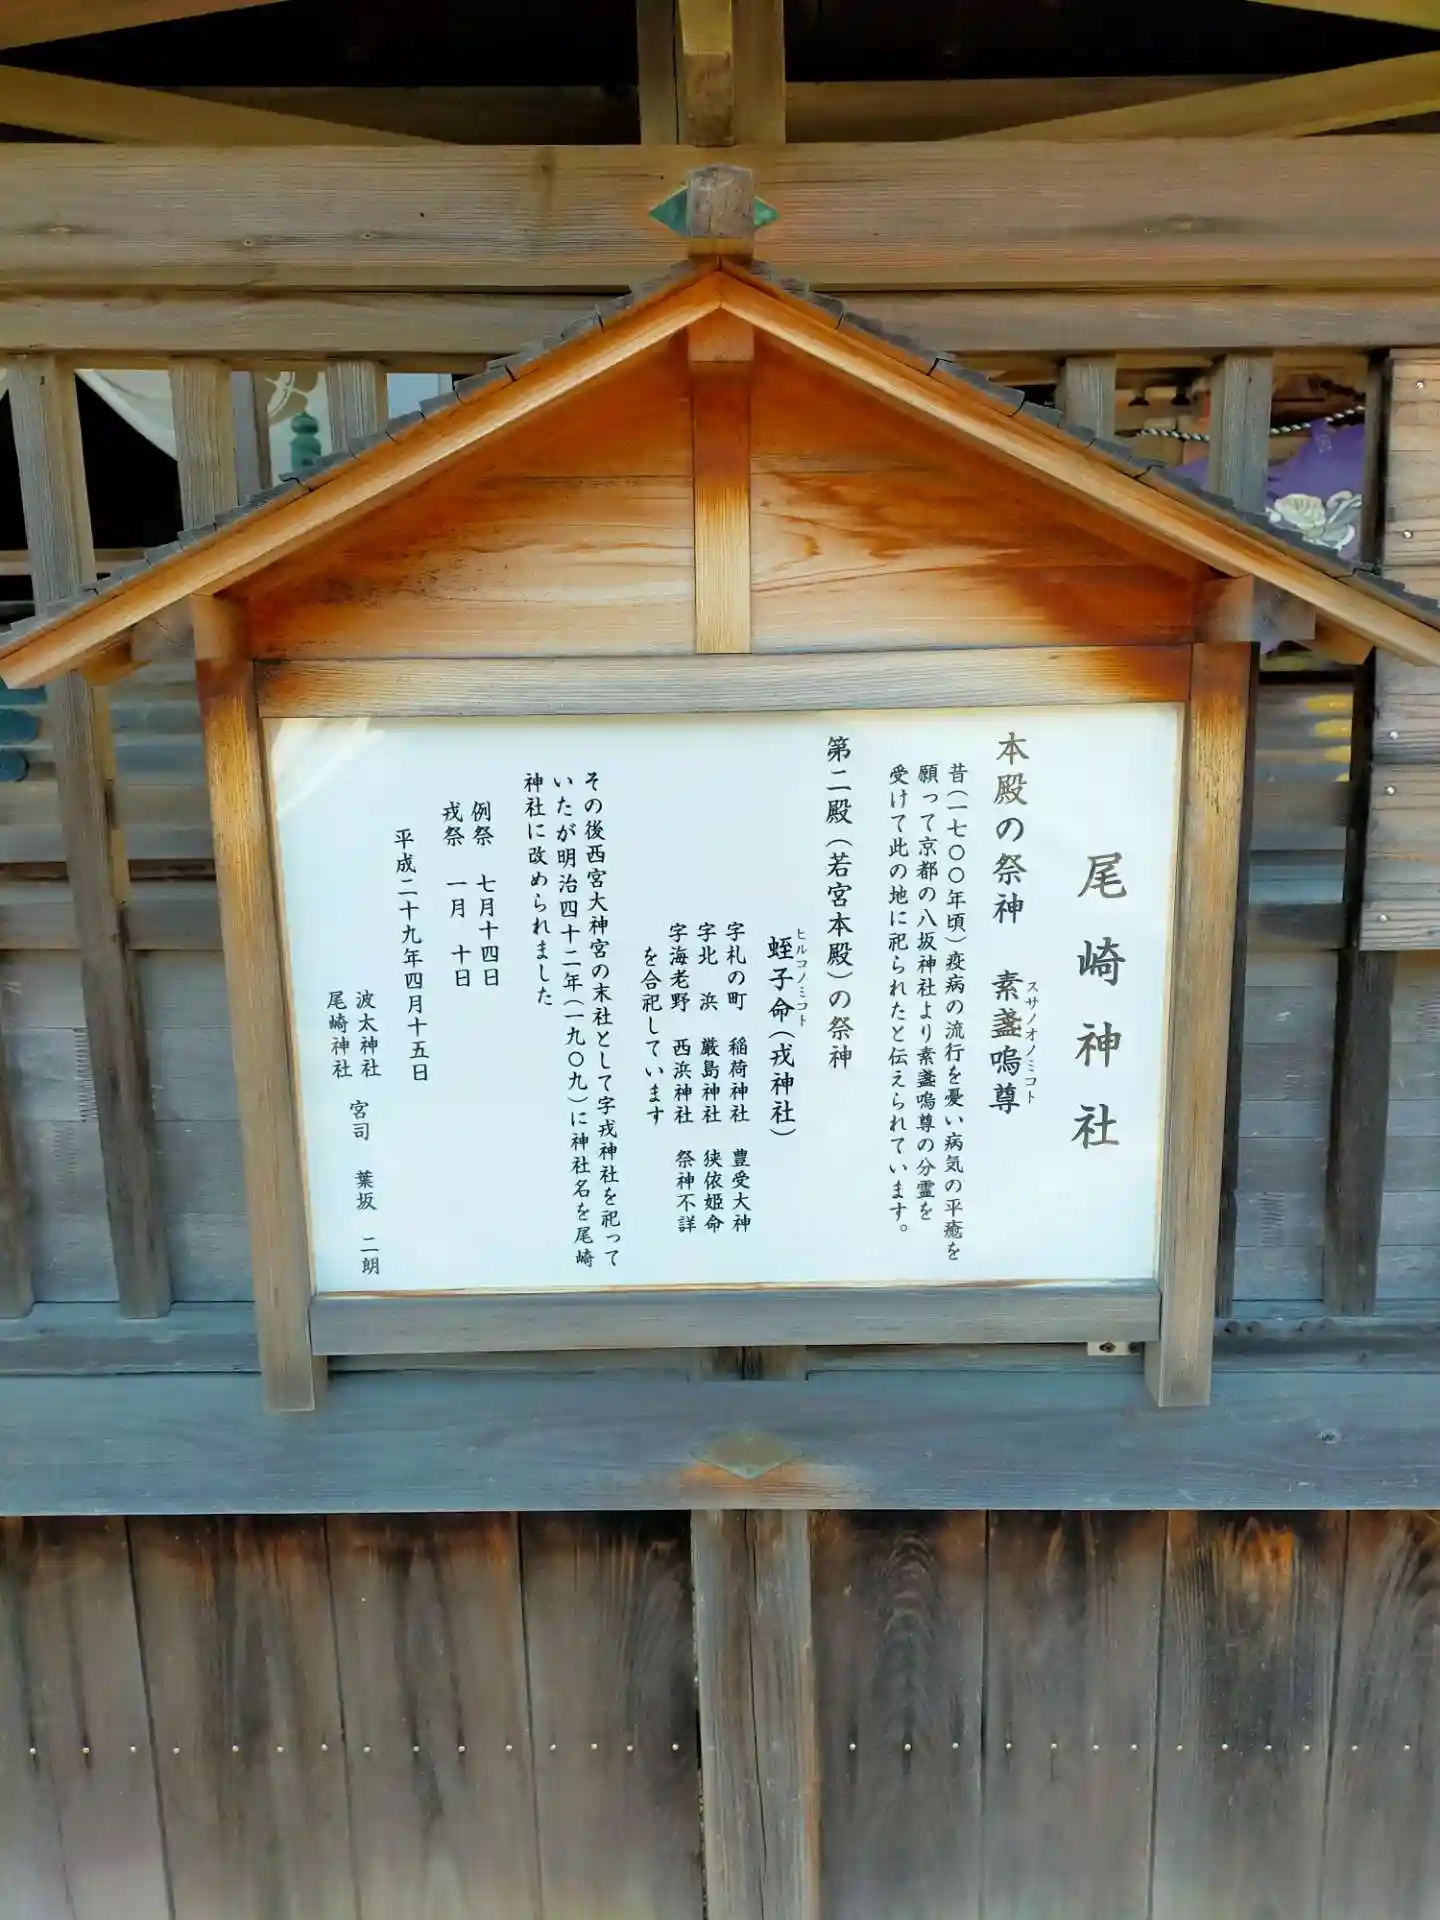 尾崎神社
本殿の祭神　素盞嗚尊
スサノオノミコト
昔（一七〇〇年頃）疫病の流行を憂い病気の平癒を
願って京都の八坂神社より素盞嗚尊の分霊を
受けて此の地に祀られたと伝えられています。
第二殿（若宮本殿）の祭神
蛭子命（戎神社）
ヒルコノミコト
字札の町　稲荷神社　豊受大神
字北　浜　厳島神社　狭依姫命
字海老野　西浜神社　祭神不詳
を合祀しています
その後西宮大神宮の末社として字戎神社を祀って
いたが明治四十二年（一九〇九）に神社名を尾崎
神社に改められました
例祭　七月十四日
戎祭　一月　十日
平成二十九年四月十五日
波太神社
尾崎神社　宮司　葉坂　二朗